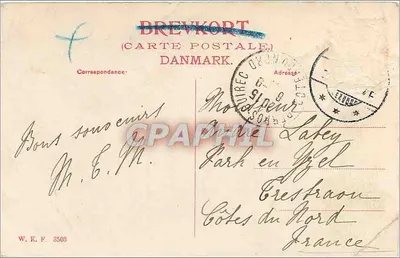 BREVKORT
(CARTE POSTALE)
DANMARK.
Correspondance:
Adresse:
Bons souvenirs
M. E. M.
Monsieur
André Labey
Park en
Trestraou
Côtes du Nord
France
W. K. F. 3505
CPAPHIL